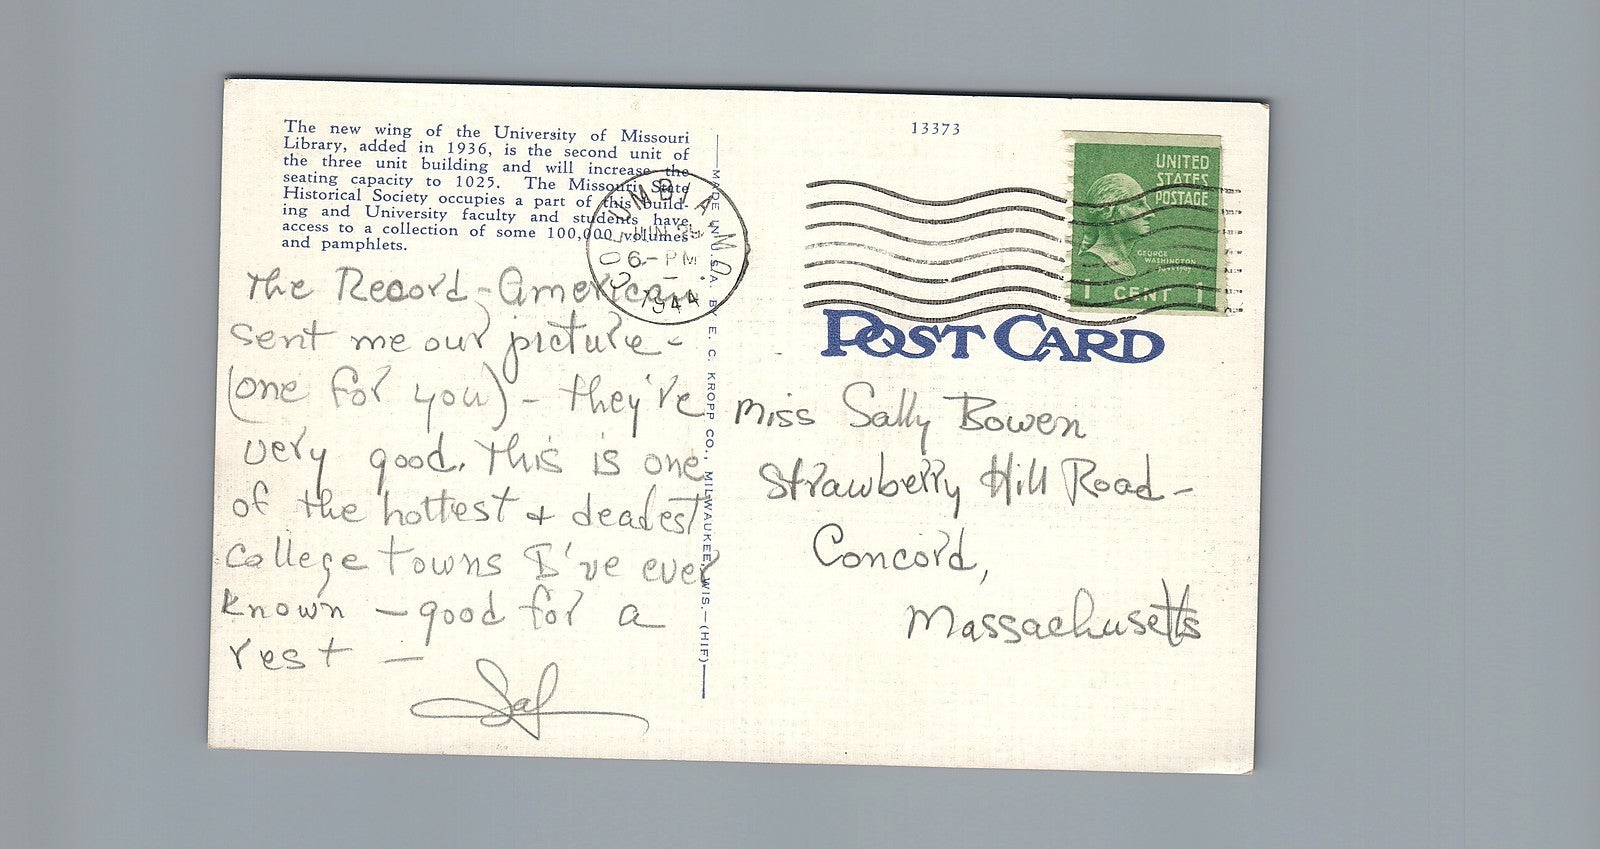 The new wing of the University of Missouri
Library, added in 1936, is the second unit of
the three unit building and will increase the
seating capacity to 1025. The Missouri State
Historical Society occupies a part of this build-
ing and University faculty and students have
access to a collection of some 100,000 volumes
and pamphlets.
The Record-American
sent me our picture -
(one for you) - they're
very good. This is one
of the hottest + deadest
college towns I've ever
known - good for a
rest -
Sal
MADE IN U.S.A. BY E. C. KROPP CO., MILWAUKEE, WIS.-(HIF)
COLUMBIA MO.
JUN
6 - PM
1944
13373
UNITED
STATES
POSTAGE
GEORGE
WASHINGTON
1 CENT 1
POST CARD
Miss Sally Bowen
Strawberry Hill Road -
Concord,
Massachusetts